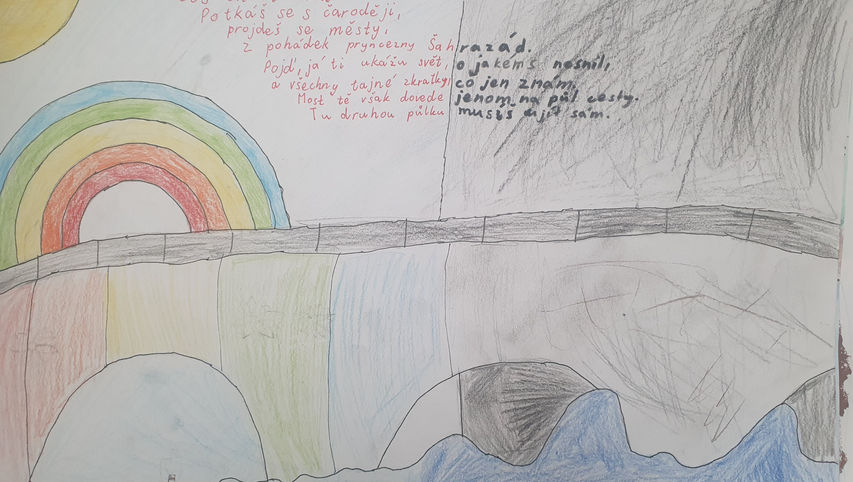 Potkáš se s čaroději,
projdeš se městy,
z pohádek pryncezny Šahrazád.
Pojď, já ti ukážu svět, o jakems nesnil,
a všechny tajné zkratky, co jen znám.
Most tě však dovede jenom na půl cesty.
Tu druhou půlku musíš dojít sám.